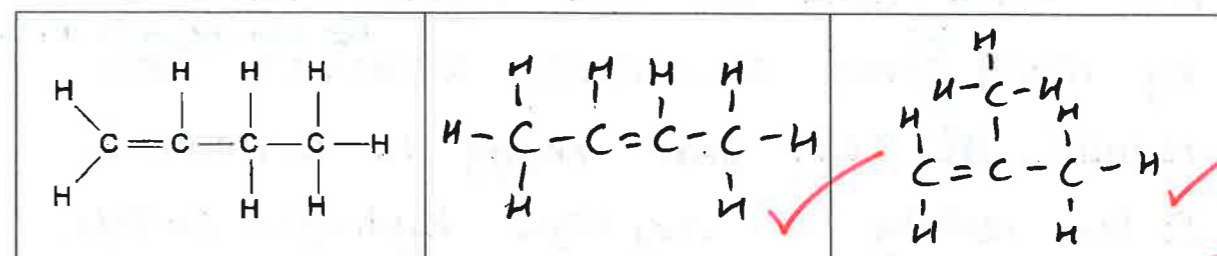 H H H H
C=C-C-C-H
H H H
H H H H
H-C-C=C-C-H
H H
H
H-C-H
H H
C=C-C-H
H H